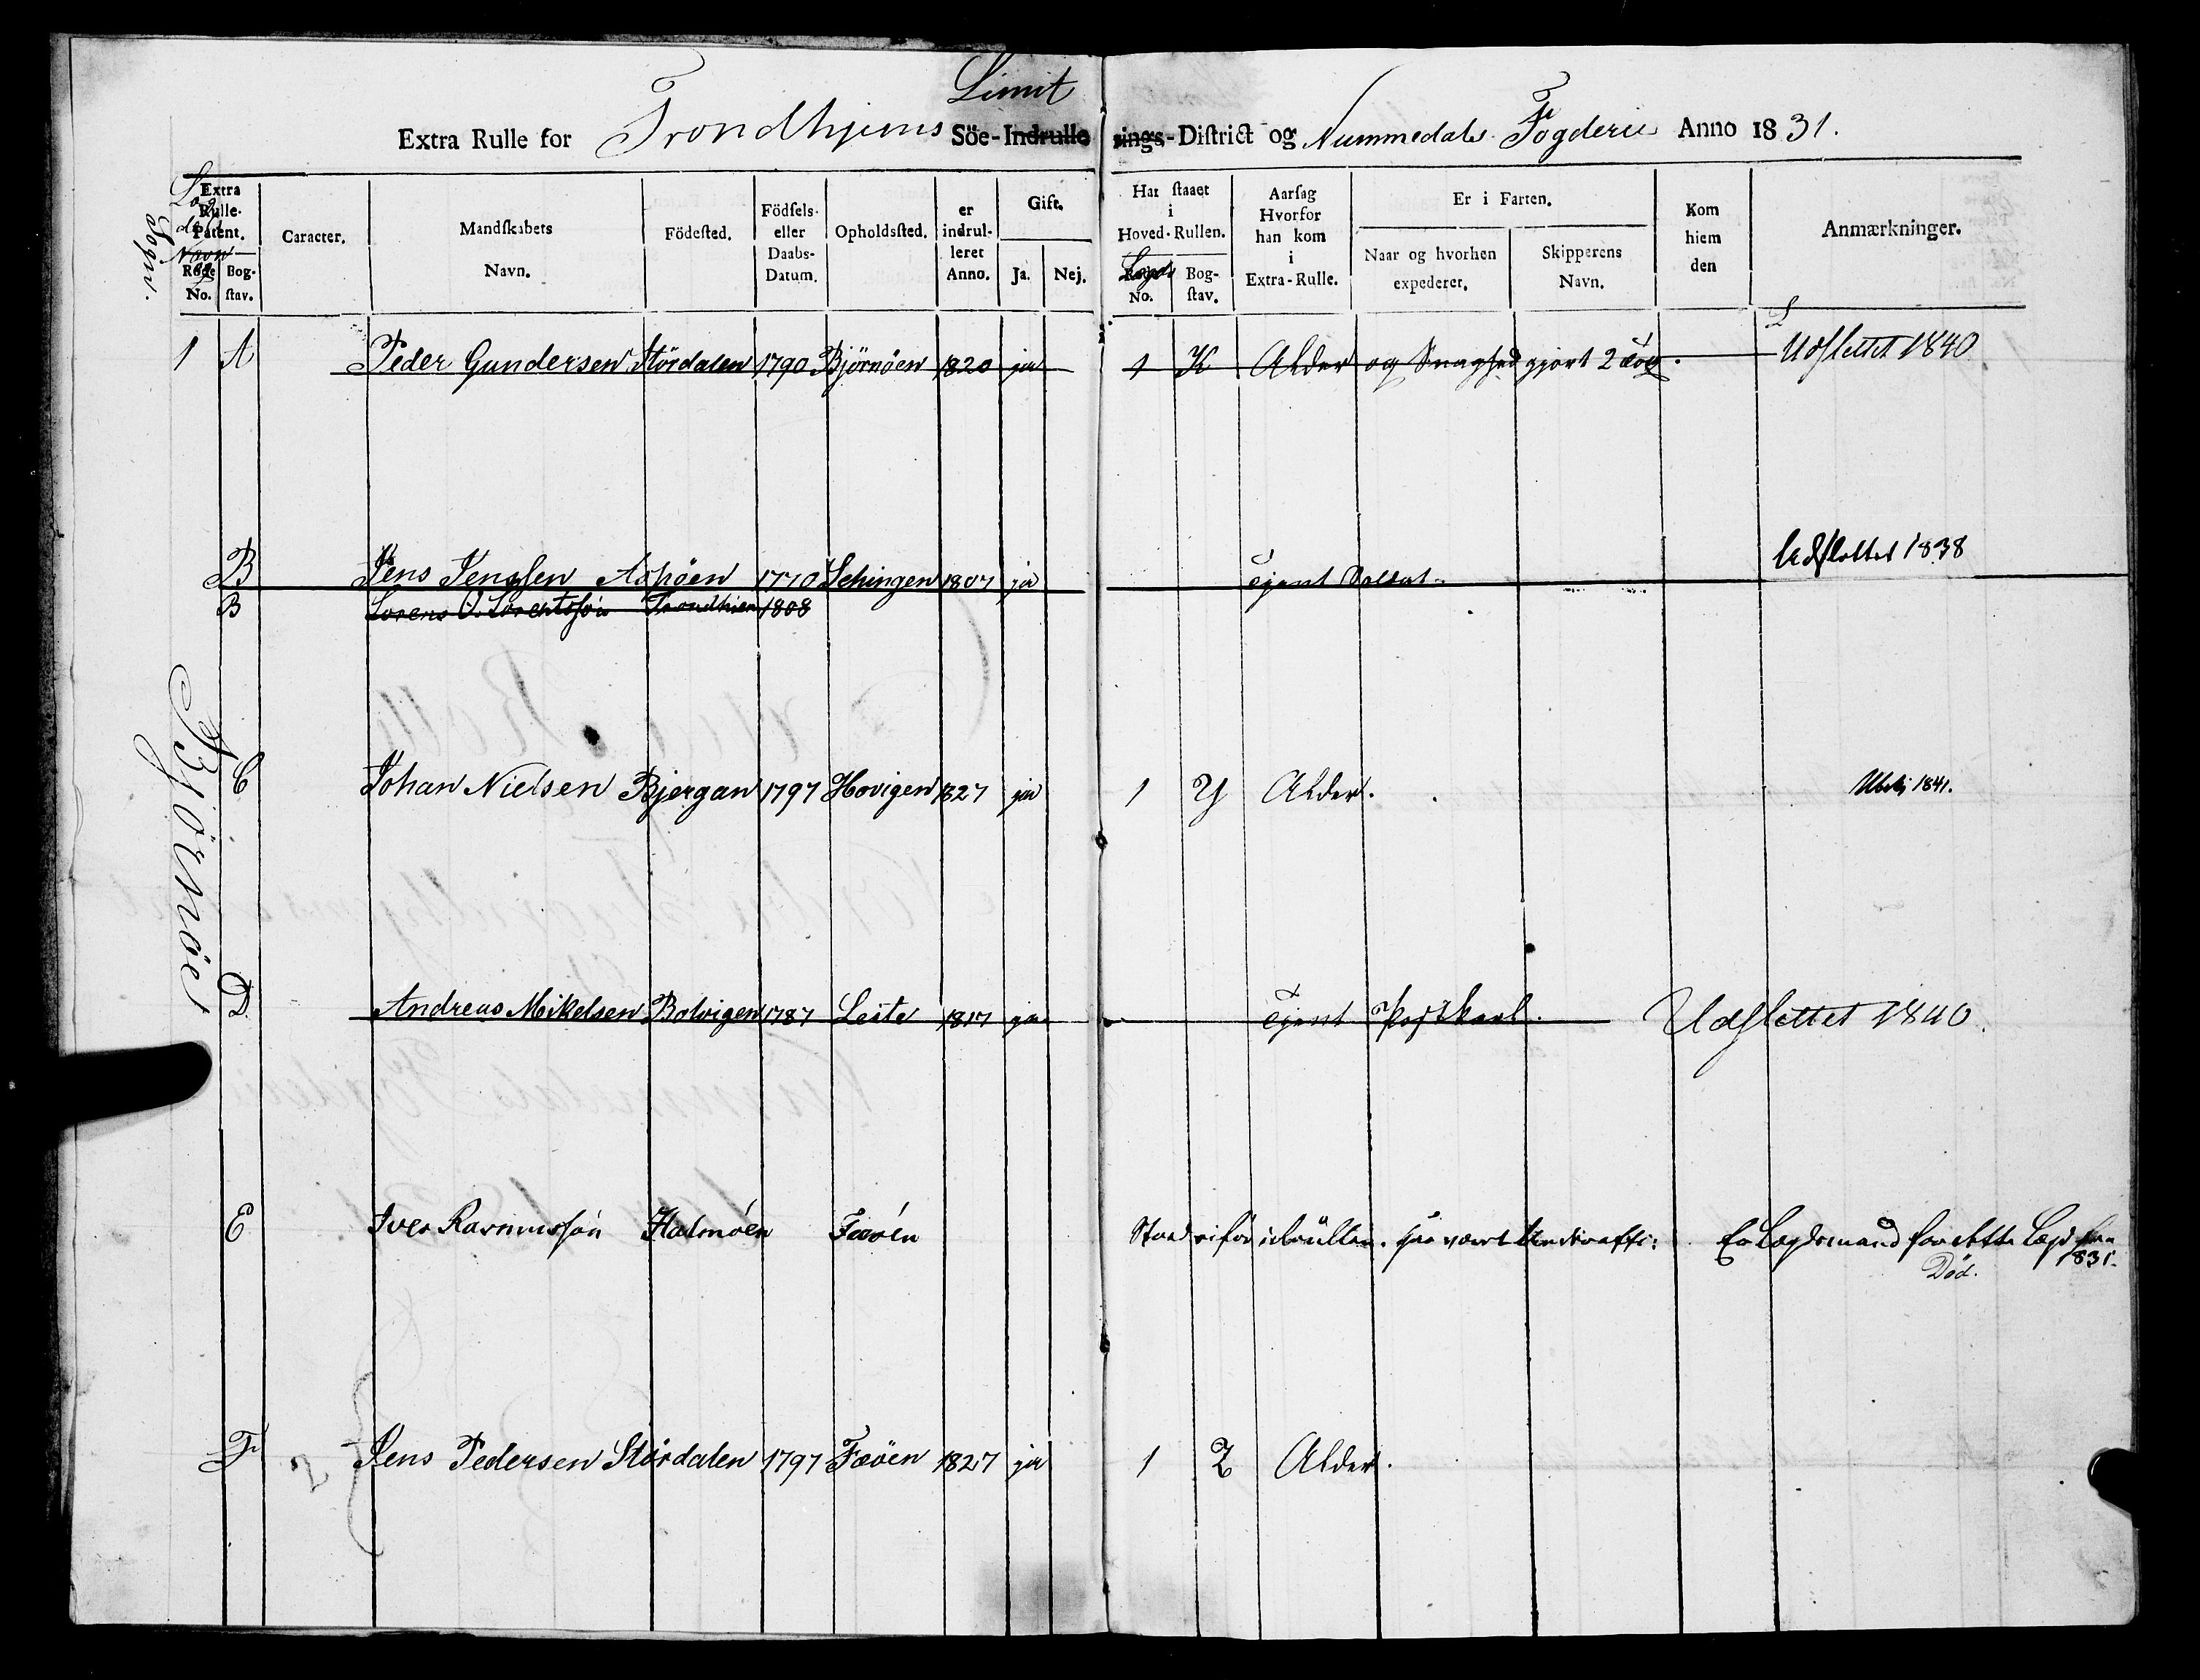 Limit
Extra Rulle for Trondhjems Söe-Indrullerings-District og Nummedals Fogderie Anno 1831.
Extra Rulle-Patent. Rode No. Bog-stav. Caracter. Mandskabets Navn. Födested. Födsels- eller Daabs-Datum. Opholdssted. er indrulleret Anno. Gift. Ja. Nej. Har staaet i Hoved-Rullen. No. Bog-stav. Aarsag Hvorfor han kom i Extra-Rulle. Er i Farten. Naar og hvorhen expederet. Skipperens Navn. Kom hiem den Anmærkninger.
Navn
Sogn.
Lægd
1 A Peder Gundersen Stördalen 1790 Björnöen 1820 ja 1 K Alder og Svaghed gjort 2 Tog. Udslettet 1840
B Jens Jenssen Asphöen 1770 Sehingen 1807 ja Tjent Soldat. Udslettet 1838
B Lorens O. Lorentssön Trondhiem 1808
Björnöer
C Johan Nielsen Bjergan 1797 Hovigen 1827 ja 1 Y Alder. 1841.
D Andreas Mikelsen Bolvigen 1787 Leite 1817 ja Tjent Postkarl. Udslettet 1840.
E Iver Rasmussön Halmöen Fæöen Stod i rullen. har været Er Lægdsmand for dette Lægd
1831.
Död.
F 2 Jens Pedersen Stördalen 1797 Fæöen 1827 ja 1 Z Alder.